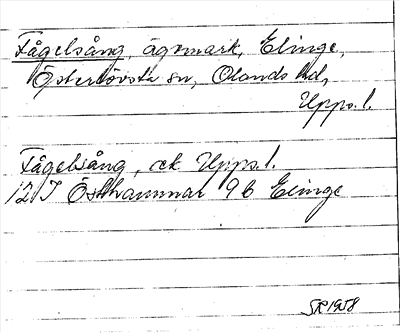 Fågelsång, ägomark, Elinge,
Österlövsta sn, Olands hd,
Upps. l.
Fågelsång, ek Upps. l.
12I Östhammar 9b Elinge
SR 1958